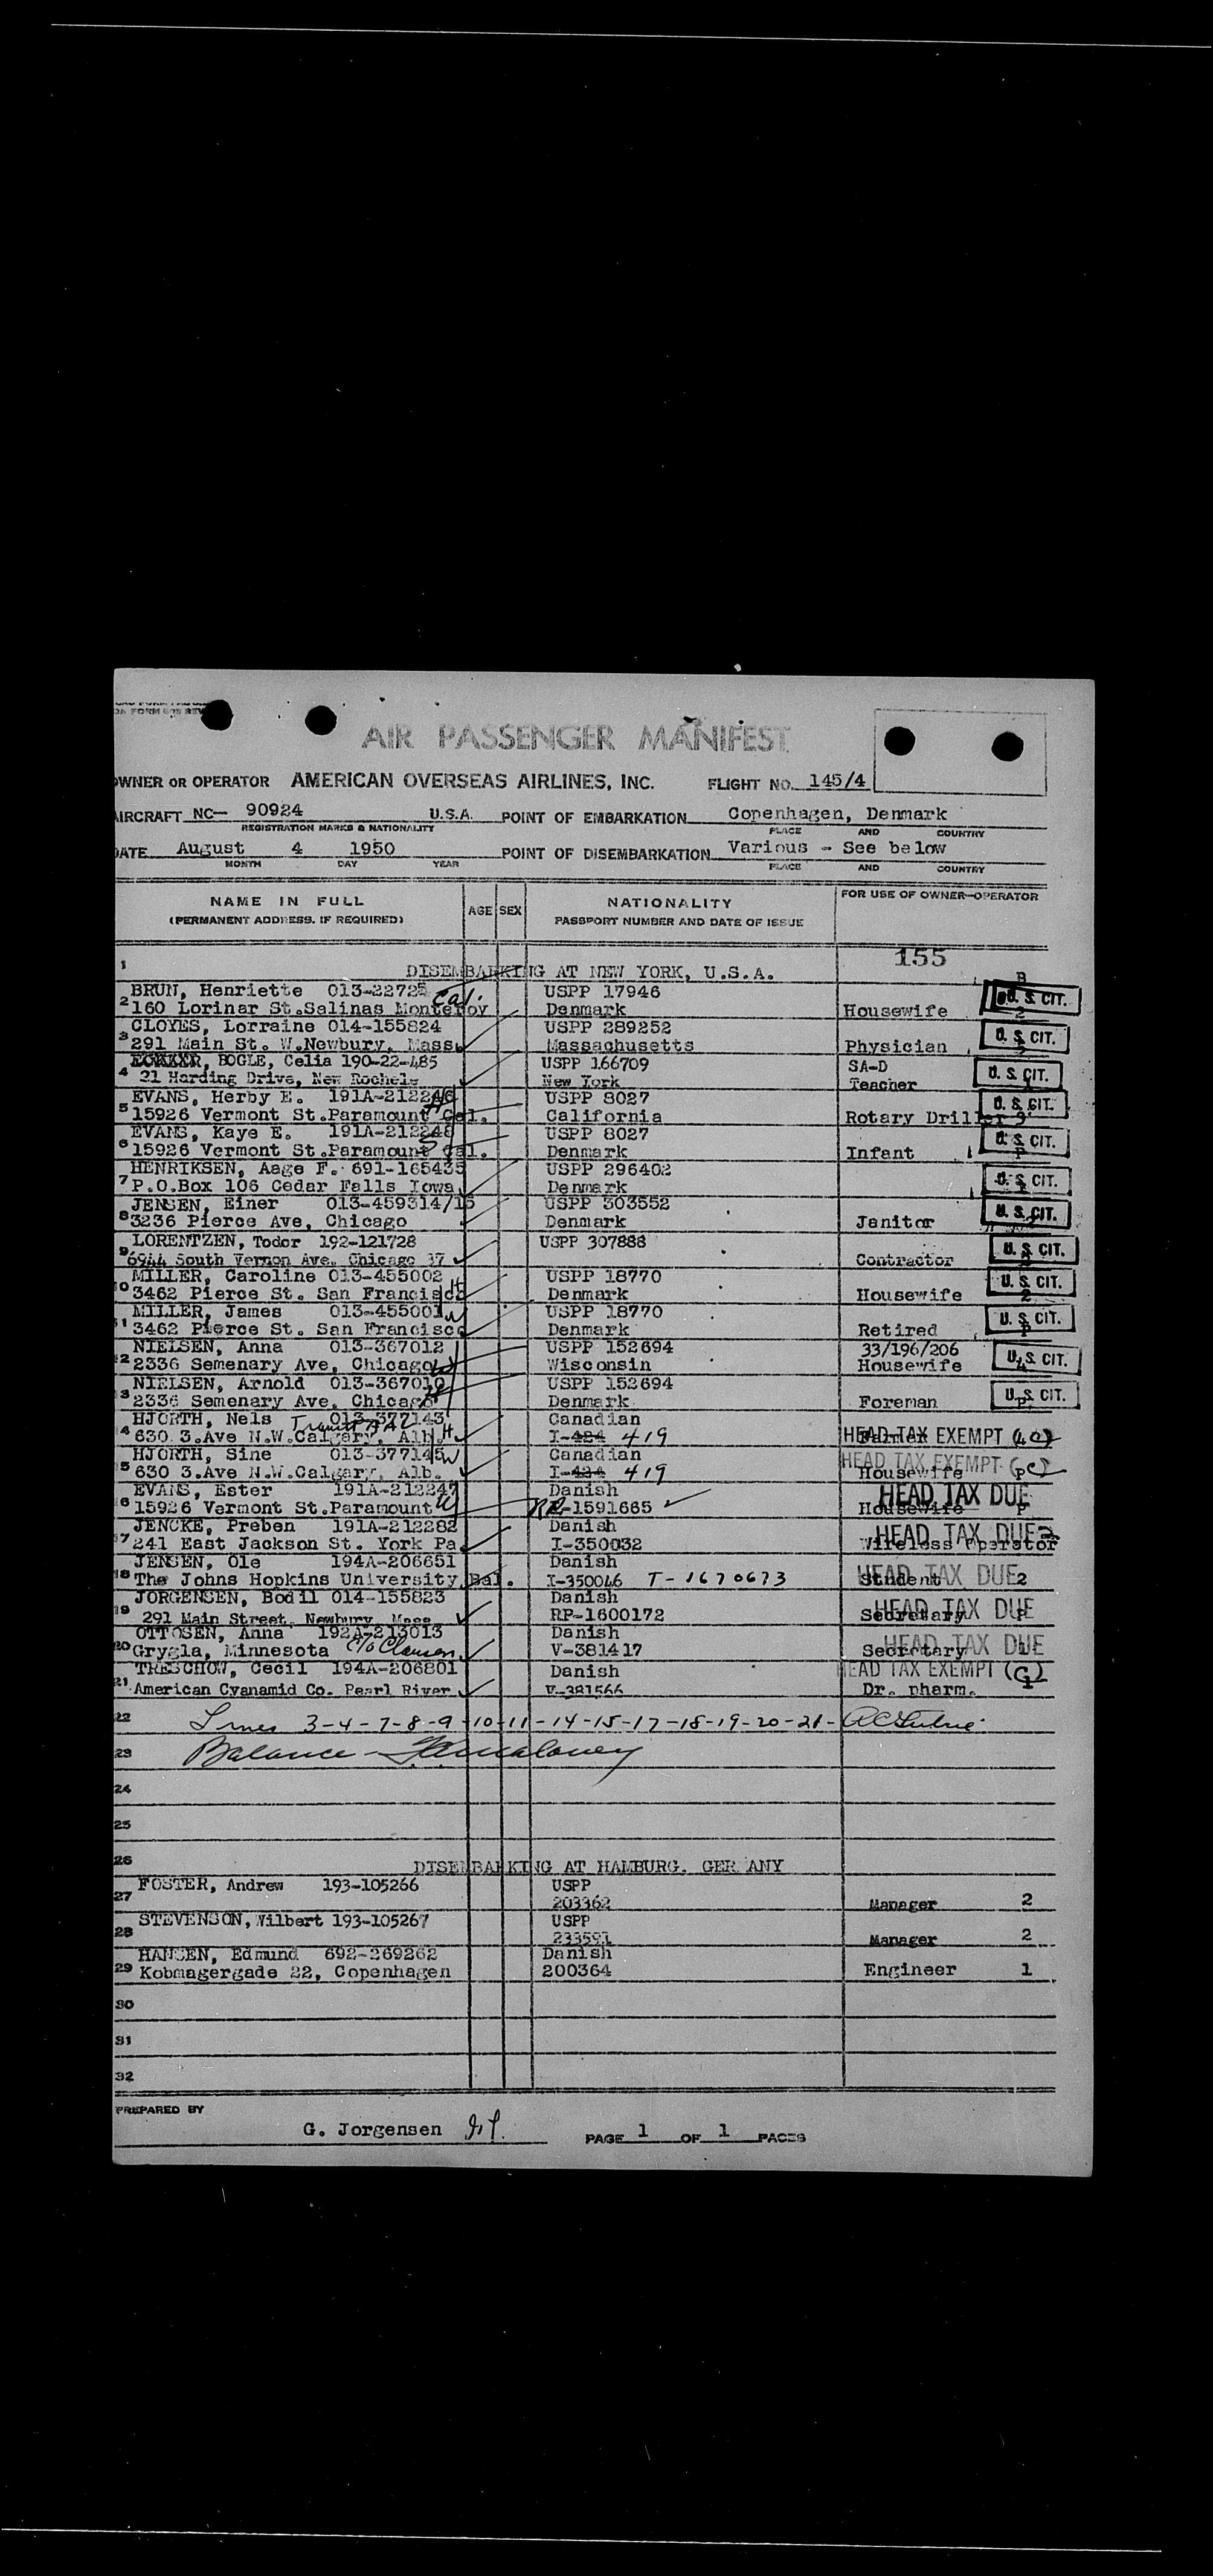 DA FORM 605 REV
AIR PASSENGER MANIFEST
OWNER OR OPERATOR AMERICAN OVERSEAS AIRLINES, INC. FLIGHT NO. 145/4
AIRCRAFT NC— 90924 U.S.A. POINT OF EMBARKATION Copenhagen, Denmark
REGISTRATION MARKS & NATIONALITY PLACE AND COUNTRY
DATE August 4 1950 POINT OF DISEMBARKATION Various - See below
MONTH DAY YEAR PLACE AND COUNTRY
NAME IN FULL AGE SEX NATIONALITY FOR USE OF OWNER-OPERATOR
(PERMANENT ADDRESS, IF REQUIRED) PASSPORT NUMBER AND DATE OF ISSUE
155
1 DISEMBARKING AT NEW YORK, U.S.A.
BRUN, Henriette 013-22725 Cal. USPP 17946 B U.S. CIT.
2 160 Lorinar St.Salinas Monterey Denmark Housewife 2
CLOYES, Lorraine 014-155824 USPP 289252 U.S. CIT.
3 291 Main St. W.Newbury. Mass. Massachusetts Physician
BOGLE, Celia 190-22-485 USPP 166709 SA-D U.S. CIT.
4 21 Harding Drive, New Rochele New York Teacher
EVANS, Herby E. 191A-212246 USPP 8027 U.S. CIT.
5 15926 Vermont St.Paramount Cal. H California Rotary Driller 3
EVANS, Kaye E. 191A-212248 USPP 8027 U.S. CIT.
6 15926 Vermont St.Paramount Cal. S Denmark Infant P
HENRIKSEN, Aage F. 691-165435 USPP 296402 U.S. CIT.
7 P.O.Box 106 Cedar Falls Iowa Denmark
JENSEN, Einer 013-459314/15 USPP 303552 U.S. CIT.
8 3236 Pierce Ave, Chicago Denmark Janitor
LORENTZEN, Todor 192-121728 USPP 307888 U.S. CIT.
9 6944 South Vernon Ave. Chicago 37 Contractor
MILLER, Caroline 013-455002 USPP 18770 U.S. CIT.
10 3462 Pierce St. San Francisco Denmark Housewife 2
MILLER, James 013-455001 USPP 18770 U.S. CIT.
11 3462 Pierce St. San Francisco Denmark Retired P
NIELSEN, Anna 013-367012 USPP 152694 33/196/206 U.S. CIT.
12 2336 Semenary Ave, Chicago W Wisconsin Housewife
NIELSEN, Arnold 013-367010 USPP 152694 U.S. CIT.
13 2336 Semenary Ave, Chicago H Denmark Foreman P
HJORTH, Nels 013-377143 Canadian HEAD TAX EXEMPT
14 630 3.Ave N.W.Calgary, Alb. H I-424 419
HJORTH, Sine 013-377145 W Canadian HEAD TAX EXEMPT (PC)
15 630 3.Ave N.W.Calgary, Alb. I-424 419 Housewife
EVANS, Ester 191A-212247 Danish HEAD TAX DUE
16 15926 Vermont St.Paramount W RP-1591665 Housewife P
JENCKE, Preben 191A-212282 Danish HEAD TAX DUE
17 241 East Jackson St. York Pa. I-350032 Wireless Operator
JENSEN, Ole 194A-206651 Danish HEAD TAX DUE
18 The Johns Hopkins University Bal. I-350046 T-1670673 Student 2
JORGENSEN, Bodil 014-155823 Danish HEAD TAX DUE
19 291 Main Street, Newbury, Mass RP-1600172 Secretary
OTTOSEN, Anna 192A-213013 Danish HEAD TAX DUE
20 Grygla, Minnesota c/o Clausen V-381417 Secretary
TRESCHOW, Cecil 194A-206801 Danish HEAD TAX EXEMPT (G)
21 American Cyanamid Co. Pearl River V-381566 Dr. pharm.
22 Lines 3-4-7-8-9-10-11-14-15-17-18-19-20-21-
23 Balance -
24
25
26 DISEMBARKING AT HAMBURG. GER ANY
FOSTER, Andrew 193-105266 USPP
27 203362 Manager 2
STEVENSON, Wilbert 193-105267 USPP
28 233591 Manager 2
HANSEN, Edmund 692-269262 Danish
29 Kobmagergade 22, Copenhagen 200364 Engineer 1
30
31
32
PREPARED BY
G. Jorgensen PAGE 1 OF 1 PAGES